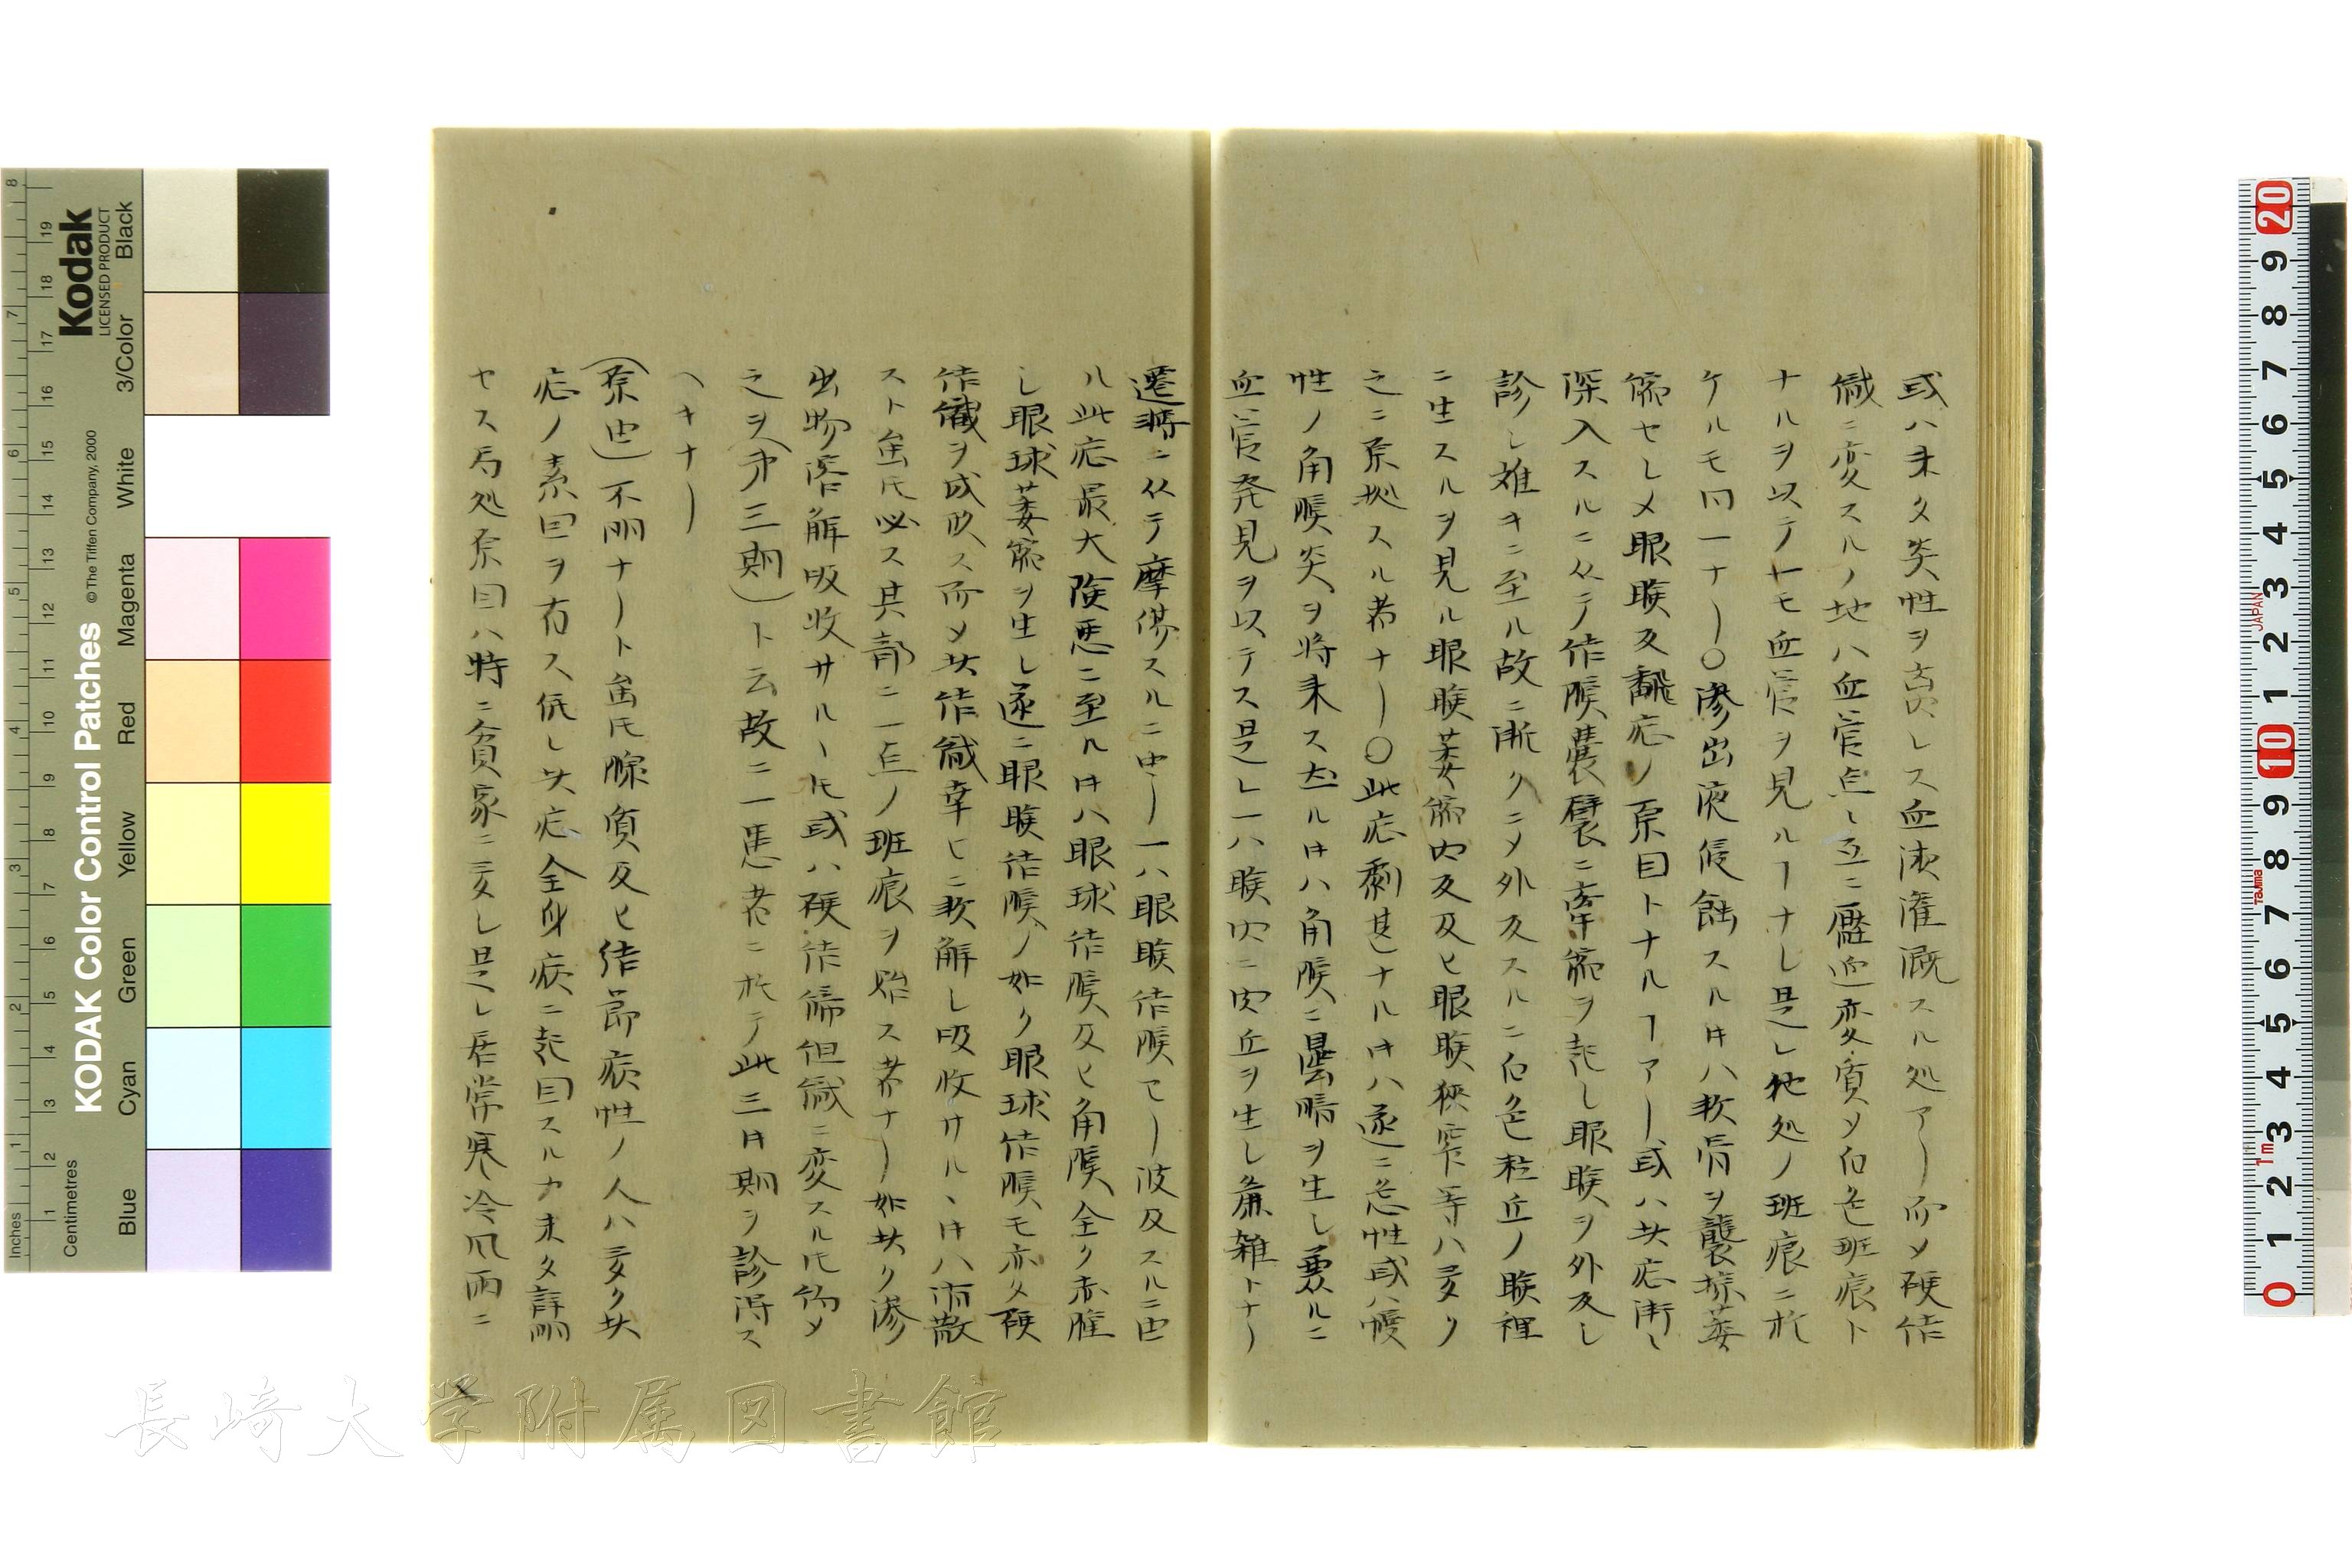 或ハ未タ炎性ヲ亮レス血液灌漑スル処アリ而メ硬結
織ニ変スルノ地ハ血管点々互ニ壓迫変質メ白色斑痕ト
ナルヲ以テ一モ血管ヲ見ルヿナシ是レ他処ノ斑痕ニ於
ケルモ同一ナリ〇滲出液侵蝕スル时ハ軟骨ヲ襲撩萎
縮セシメ眼瞼及翻症ノ原因トナルヿアリ或ハ此症漸々
深入スルニ从テ結膜嚢襞ニ牽縮ヲ起シ眼瞼ヲ外反シ
診シ難キニ至ル故ニ漸クニメ外反スルニ白色粒丘ノ瞼裡
ニ生スルヲ見ル眼瞼萎縮内反及ヒ眼瞼狭窄等ハ多ク
之ニ原拠スル者ナリ〇此症劇甚ナル时ハ遂ニ急性或ハ慢
性ノ角膜炎ヲ将来ス然ル时ハ角膜ニ曇暗ヲ生シ
血管発見ヲ以テス是レ一ハ瞼内ニ肉丘ヲ生シ麁雑トナリ
遷轉ニ从テ摩傷スルニ由リ一ハ眼瞼結膜ヨリ波及スルニ由
ル此症最大險悪ニ至ル时ハ眼球結膜及ヒ角膜全ク赤腫
シ眼球萎縮ヲ生シ遂ニ眼瞼結膜ノ如ク眼球結膜モ亦タ硬
結織ヲ成ス而メ此結織幸ヒニ軟解シ吸收サルヽ时ハ消散
スト雖𪜈必ス其部ニ一点ノ斑痕ヲ貽ス者ナリ如此ク滲
出物溶解吸收サルヽ𪜈或ハ硬結締組織ニ変スル𪜈
之ヲ(第三期)ト云故ニ一患者ニ於テ此三时期ヲ診得ス
ヘキナリ
(原由)不明ナリト雖𪜈腺質及ヒ結節病性ノ人ハ多ク此
症ノ素因ヲ有ス然シ此症全身病ニ起因スルカ未タ詳明
セス局処原因ハ特ニ貧家ニ多シ是レ居常寒冷风雨ニ
長崎大学附属図書館
Kodak
LICENSED PRODUCT
KODAK Color Control Patches
© The Tiffen Company, 2000
Inches
Centimetres
Blue
Cyan
Green
Yellow
Red
Magenta
White
3/Color
Black
JAPAN
Tajima
1m